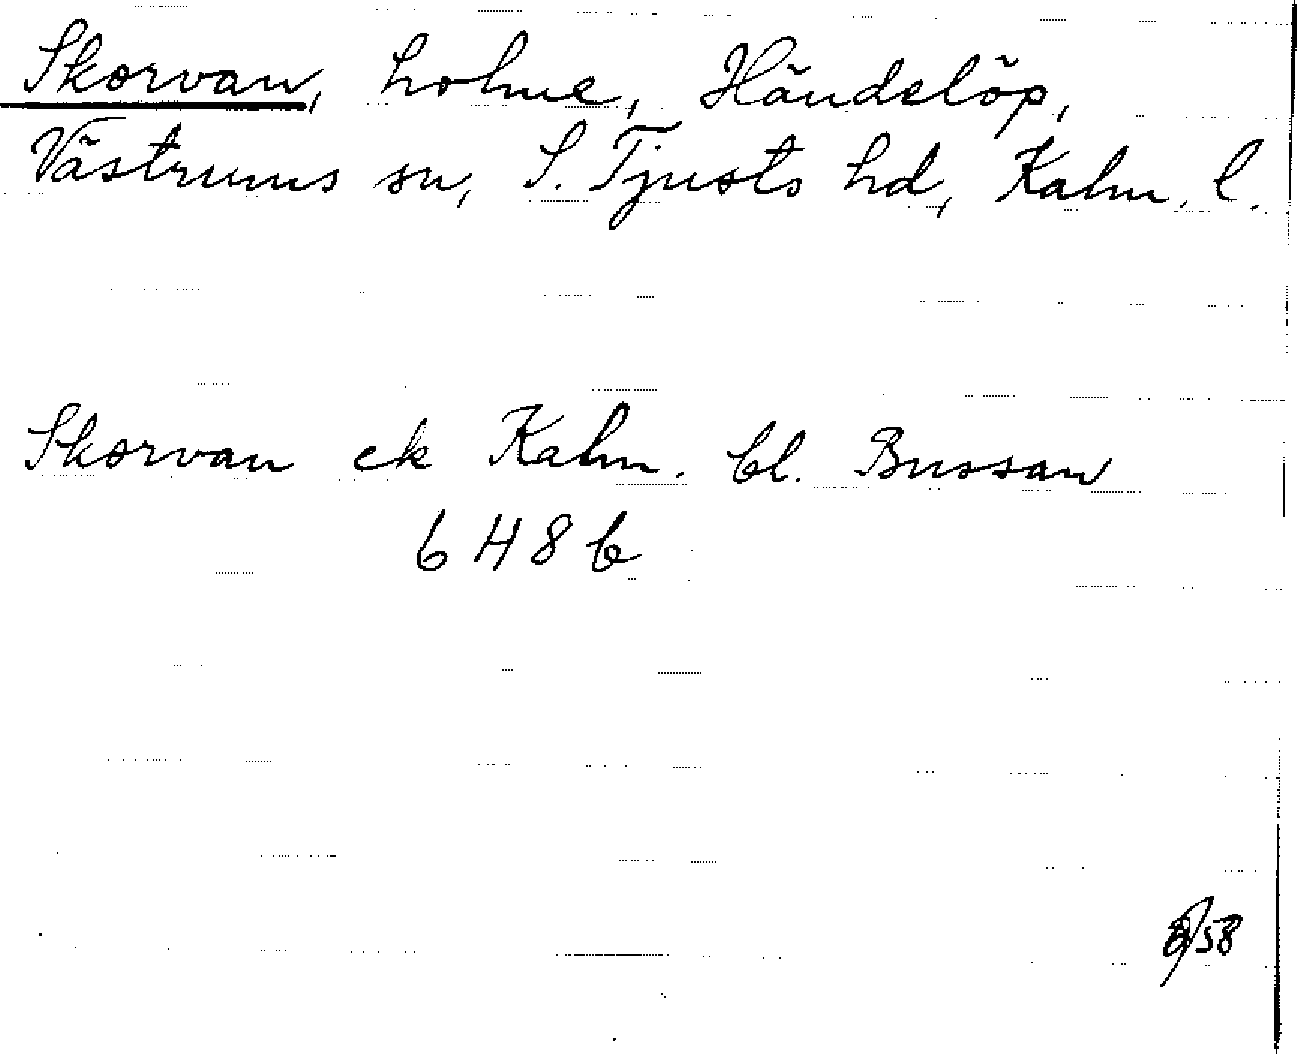 Skorvan, holme, Händelöp,
Västrums sn, S. Tjusts hd, Kalm. l.
Skorvan ek Kalm. bl. Bussan
6 H 8 b